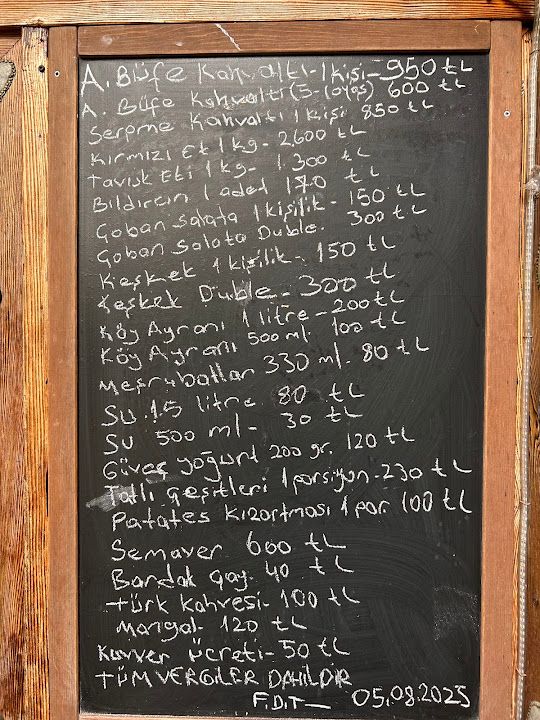 A. Büfe Kahvaltı-1 kişi-950 tL
A. Büfe Kahvaltı (5-10yaş) 600 tL
Serpme Kahvaltı 1 kişi 850 tL
Kırmızı Et 1 kg- 2600 tL
Tavuk Eti 1 kg- 1.300 tL
Bıldırcın 1 adet 170 tL
Çoban Salata 1 kişilik- 150 tL
Çoban Salata Duble. 300 tL
Keşkek 1 kişilik- 150 tL
Keşkek Duble- 300 tL
Köy Ayranı 1 litre-200 tL
Köy Ayranı 500 ml. 100 tL
Meşrubatlar 330 ml. 80 tL
Su 1.5 litre 80 tL
Su 500 ml- 30 tL
Güveç yoğurt 200 gr. 120 tL
Tatlı çeşitleri 1 porsiyon-230 tL
Patates Kızartması 1 por. 100 tL
Semaver 600 tL
Bardak çay. 40 tL
Türk kahvesi- 100 tL
Mangal- 120 tL
Kuver ücreti- 50 tL
TÜM VERGİLER DAHİLDİR
F.D.T- 05.08.2025